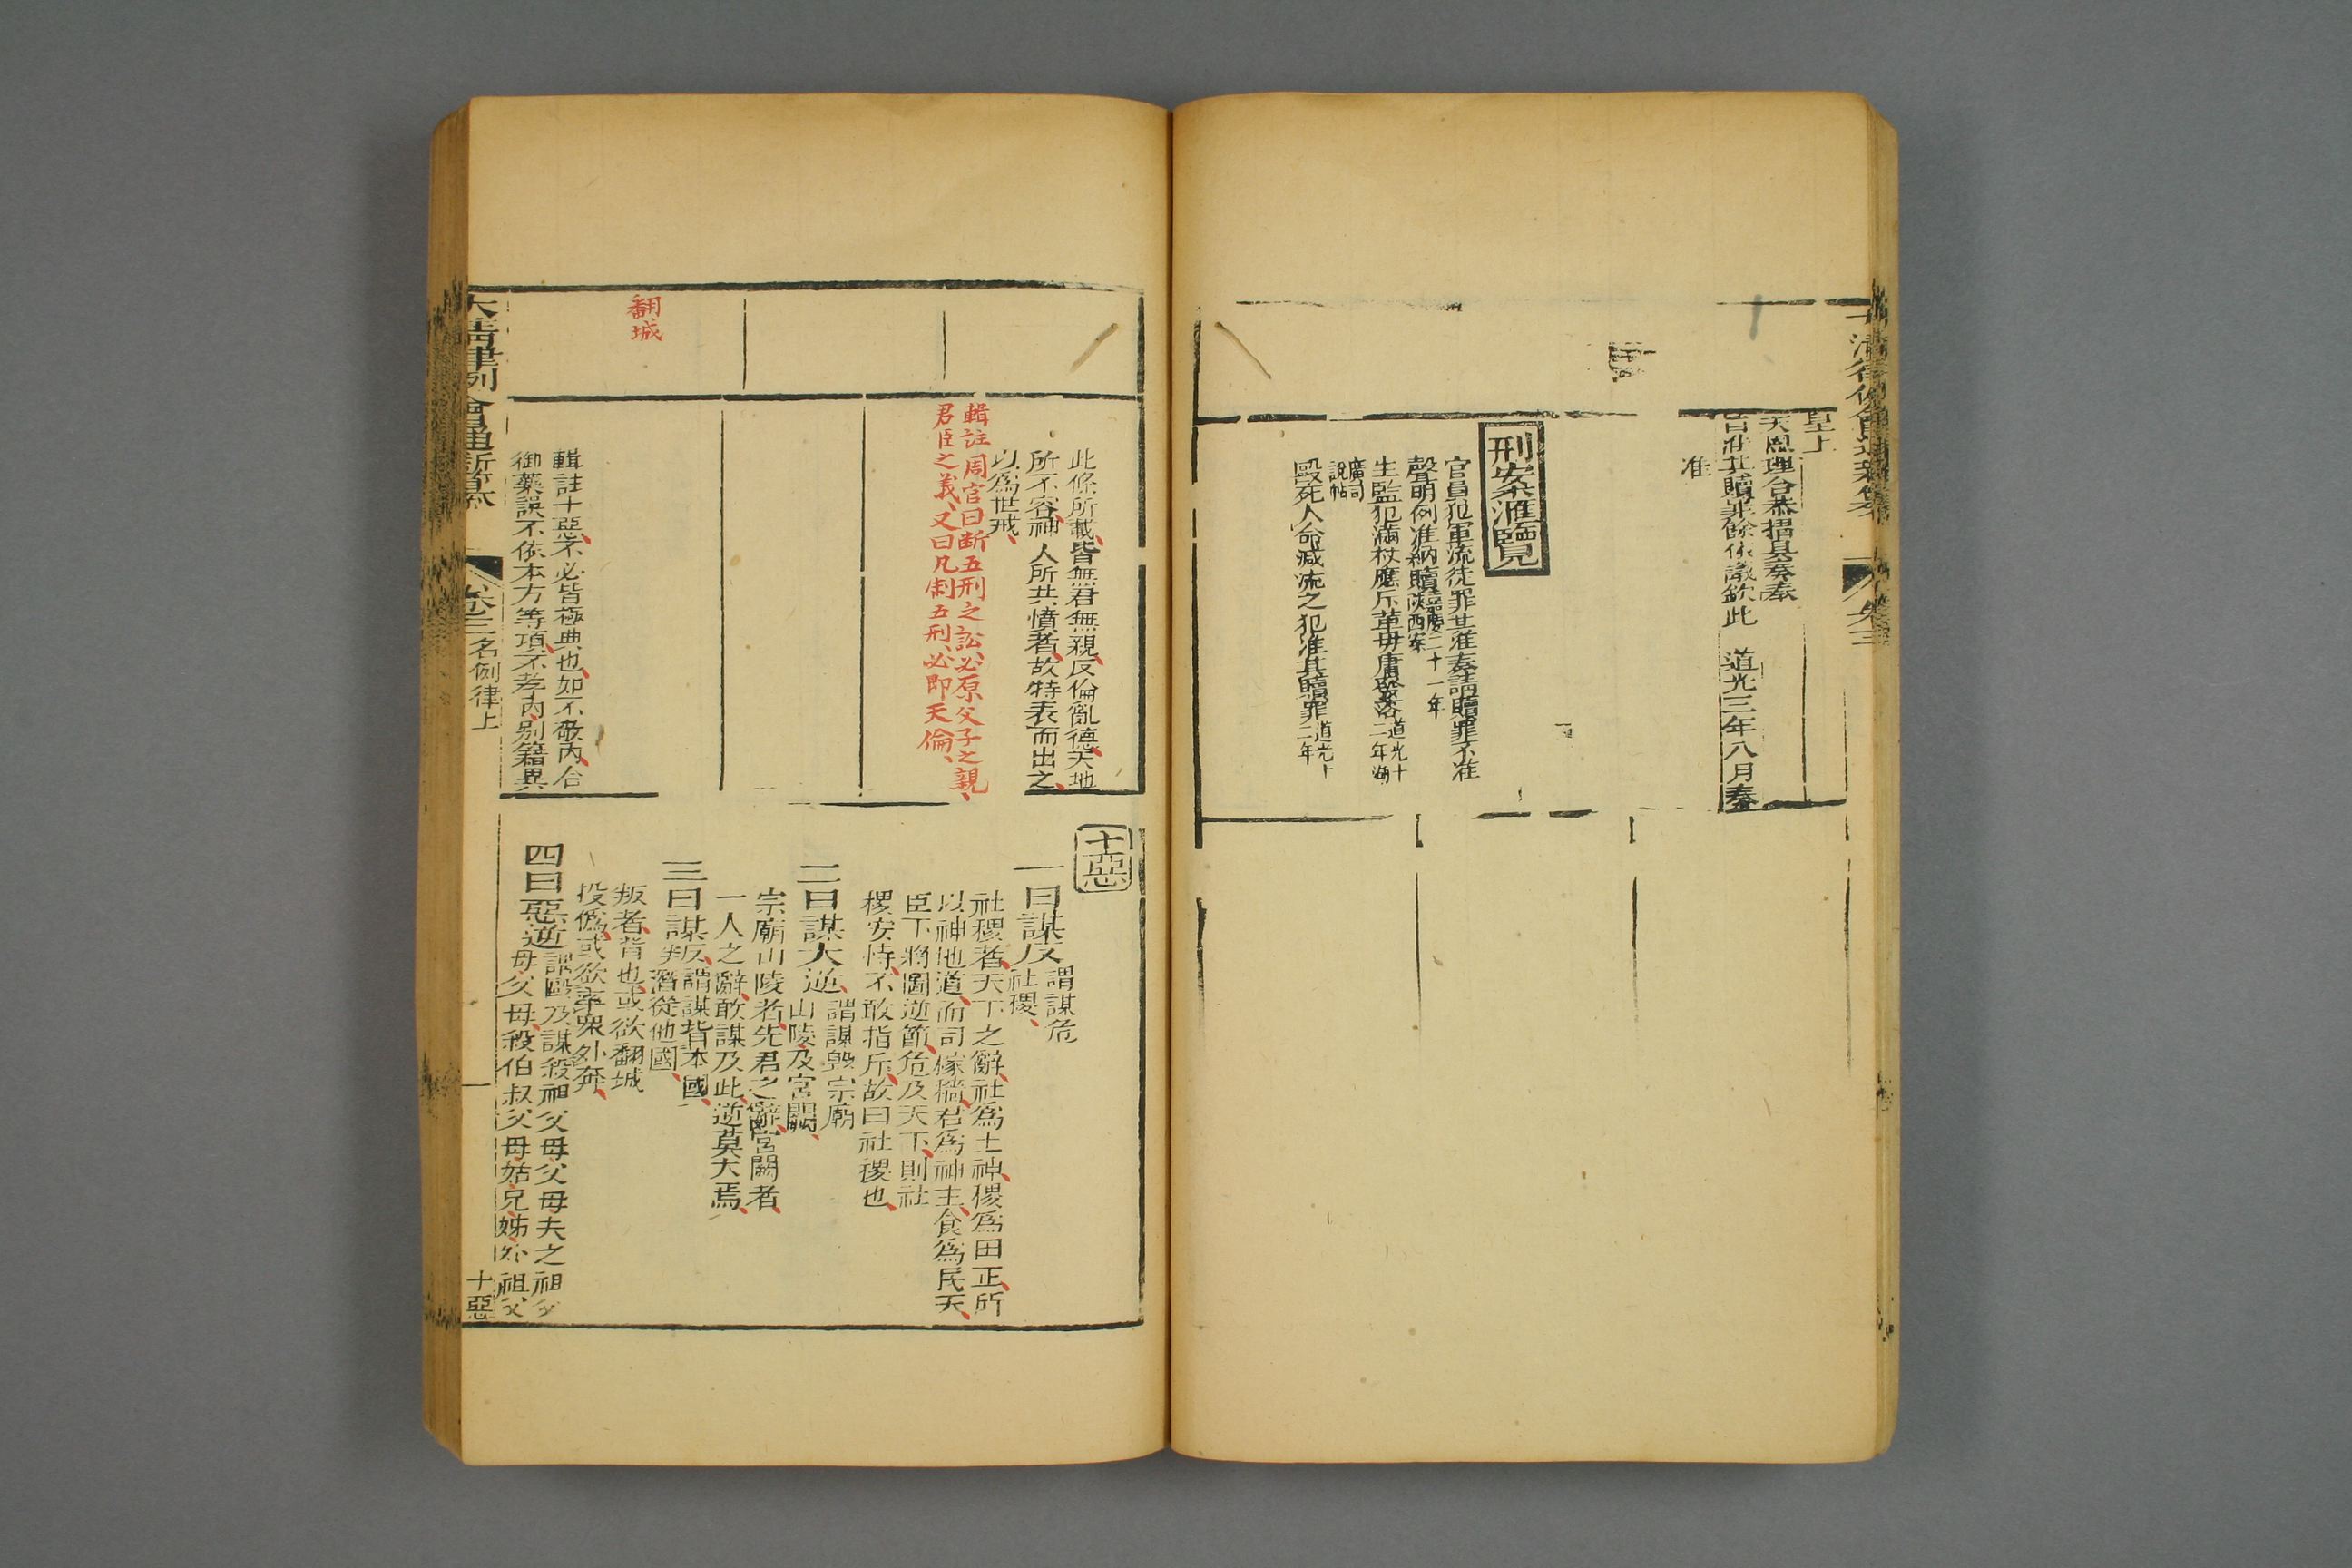 皇上
天恩理合恭摺具奏奏
旨准其贖罪餘依議欽此　道光三年八月奏
准
刑案滙覽
官員犯軍流徒罪其准奏請贖罪不准
聲明例准納贖嘉慶二十一年
陝西案
生監犯滿杖應斥革毋庸發落道光十
二年湖
廣司
說帖
毆死人命減流之犯准其贖罪道光十
二年
卷三
此條所載皆無君無親反倫亂德天地
所不容神人所共憤者故特表而出之
以為世戒
輯註周官曰断五刑之訟必原父子之親
君臣之義又曰凡制五刑必即天倫
翻城
輯註十惡不必皆極典也如不敬內合
御藥誤不依本方等項不孝內別籍異
十惡
一曰謀反謂謀危
社稷
社稷者天下之辭社為土神稷為田正所
以神地道而司稼穡君為神主食為民天
臣下將圖逆節危及天下則社
稷安恃不敢指斥故曰社稷也
二曰謀大逆謂謀毀宗廟
山陵及宮闕
宗廟山陵者先君之辭宮闕者
一人之辭敢謀及此逆莫大焉
三曰謀叛謂謀背本國
潛從他國
叛者背也或欲翻城
投僞或欲率衆外奔
四曰惡逆謂毆及謀殺祖父母父母夫之祖父
母父母殺伯叔父母姑兄姊外祖父
大清律例會通新纂
卷三名例律上
十惡